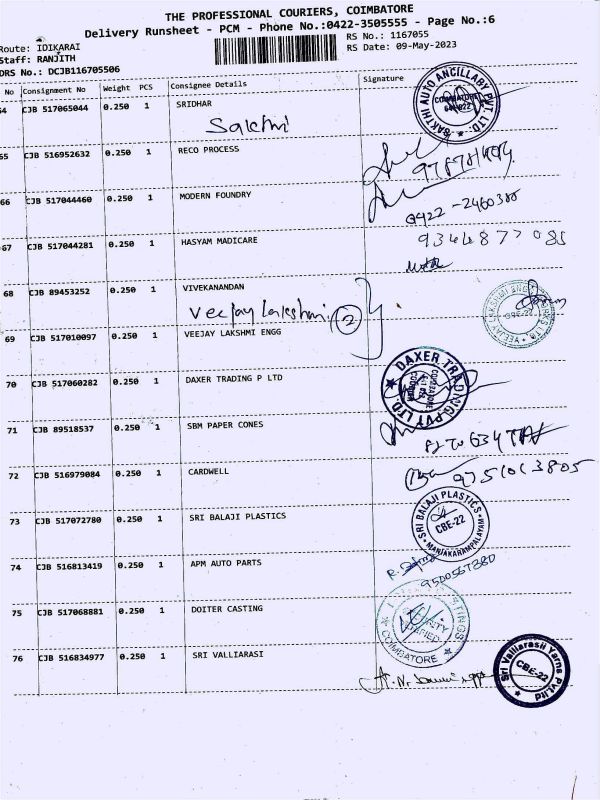 THE PROFESSIONAL COURIERS, COIMBATORE
Delivery Runsheet - PCM - Phone No.:0422-3505555 - Page No.:6
Route: IDIKARAI
RS No.: 1167055
Staff: RANJITH
RS Date: 09-May-2023
DRS No.: DCJB116705506
No Consignment No Weight PCS Consignee Details Signature
64 CJB 517065044 0.250 1 SRIDHAR
SAKTHI AUTO ANCILLARY PVT. LTD.
COIMBATORE
65 CJB 516952632 0.250 1 RECO PROCESS
66 CJB 517044460 0.250 1 MODERN FOUNDRY
0422-2460388
67 CJB 517044281 0.250 1 HASYAM MADICARE
68 CJB 89453252 0.250 1 VIVEKANANDAN
Veejay Lakshmi. 2
69 CJB 517010097 0.250 1 VEEJAY LAKSHMI ENGG
70 CJB 517060282 0.250 1 DAXER TRADING P LTD
DAXER TRADING PVT LTD
71 CJB 89518537 0.250 1 SBM PAPER CONES
72 CJB 516979084 0.250 1 CARDWELL
9751013805
73 CJB 517072780 0.250 1 SRI BALAJI PLASTICS
SRI BALAJI PLASTICS
CBE-22
74 CJB 516813419 0.250 1 APM AUTO PARTS
75 CJB 517068881 0.250 1 DOITER CASTING
COIMBATORE
76 CJB 516834977 0.250 1 SRI VALLIARASI
Sri Valliarasii Yarns Pvt Ltd
CBE-22